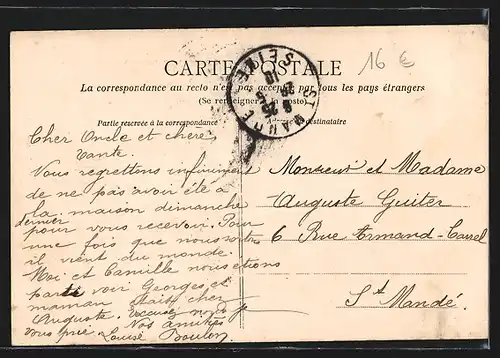 16 €
CARTE POSTALE
La correspondance au recto n'est pas acceptée par tous les pays étrangers
(Se renseigner à la poste)
Partie reservée à la correspondance
Adresse du destinataire
ST MAURE
SEINE
Cher Oncle et chère
Tante.
Vous regrettons infiniment
de ne pas avoir été à
la maison dimanche
dernier
pour vous recevoir. Pour
une fois que nous
il vient du monde.
Moi et Camille nous étions
partis voir Georges et
maman était chez
Auguste. Excusez nous je
vous prie. Nos amitiés
Louise
Monsieur et Madame
Auguste Guiter
6 Rue Armand-Carrel
St Mandé.